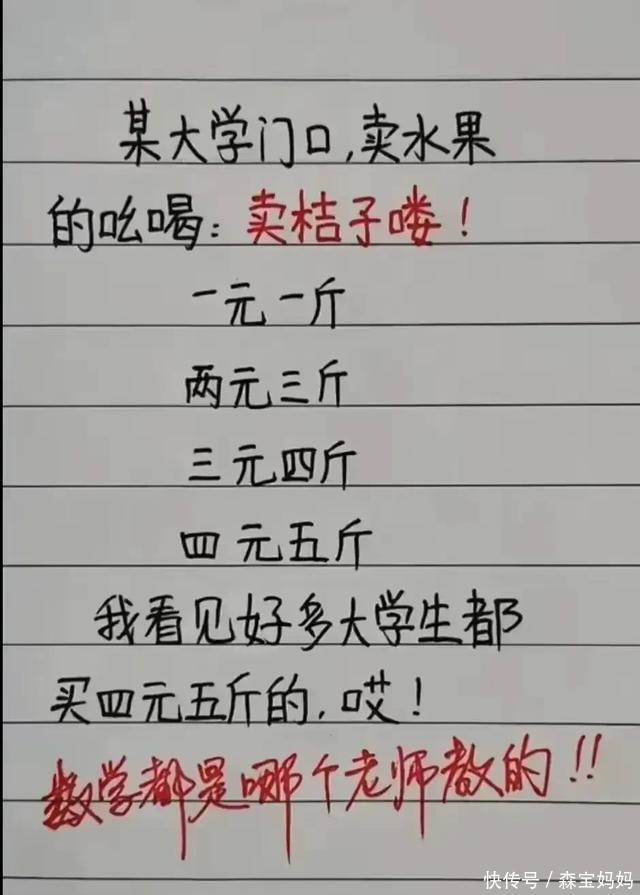 某大学门口,卖水果
的吆喝:卖桔子喽!
一元一斤
两元三斤
三元四斤
四元五斤
我看见好多大学生都
买四元五斤的,哎!
数学都是哪个老师教的!!
快传号/森宝妈妈